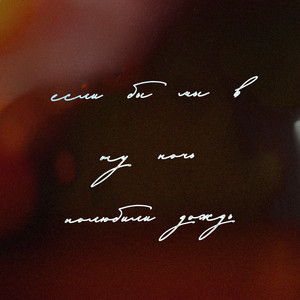 если бы мы в
ту ночь
полюбили дождь